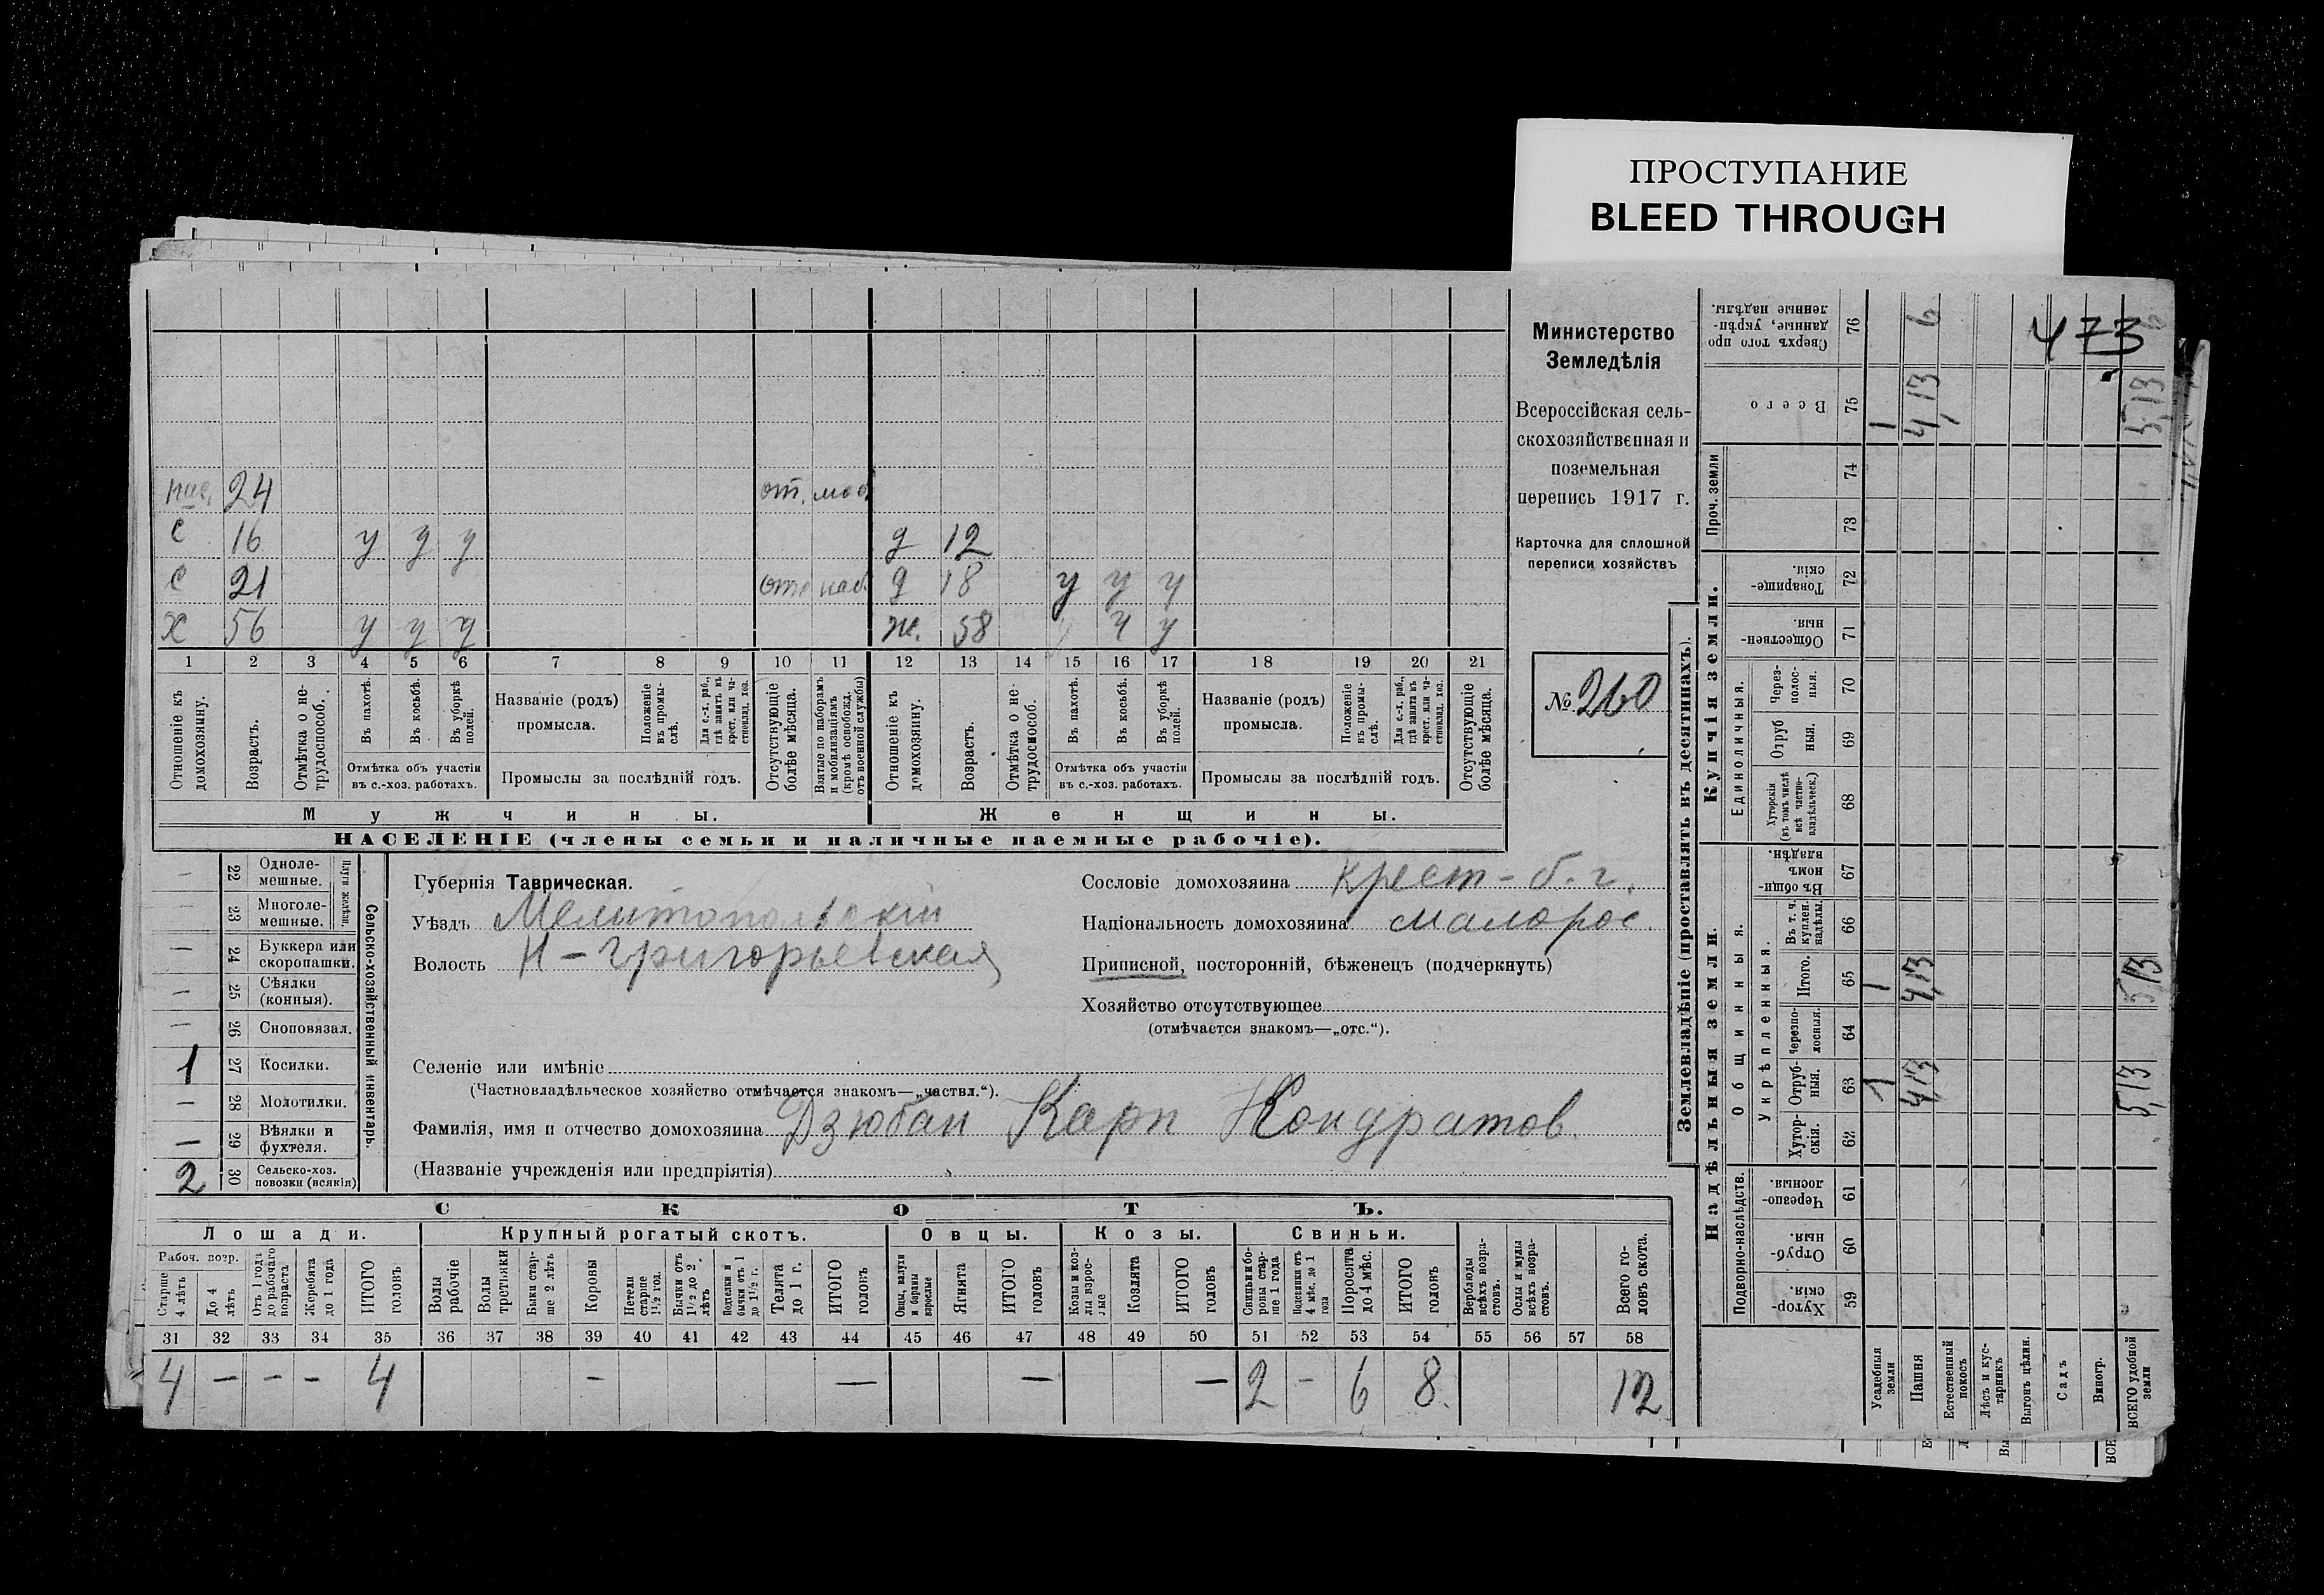 ПРОСТУПАНИЕ
BLEED THROUGH
473
Министерство
Земледѣлія
Всероссійская сель-
скохозяйственная и
поземельная
перепись 1917 г.
Карточка для сплошной
переписи хозяйствъ
№ 260
24 от. моб.
с 16 у у у д 12
с 21 отс наб. д 18 у у у
х 56 у у у ж. 58 у у
1 2 3 4 5 6 7 8 9 10 11 12 13 14 15 16 17 18 19 20 21
Отношеніе къ домохозяину.
Возрастъ.
Отмѣтка о не-трудоспособ.
Въ пахотѣ.
Въ косьбѣ.
Въ уборкѣ полей.
Отмѣтка объ участіи
въ с.-хоз. работахъ.
Названіе (родъ)
промысла.
Положеніе въ промы-слѣ.
Для с.-х. раб., гдѣ занятъ въ крест. или ча-стновлад. хоз.
Промыслы за послѣдній годъ.
Отсутствующіе болѣе мѣсяца.
Взятые по наборамъ и мобилизаціямъ (кромѣ освобожд. отъ военной службы)
Отношеніе къ домохозяину.
Возрастъ.
Отмѣтка о не-трудоспособ.
Въ пахотѣ.
Въ косьбѣ.
Въ уборкѣ полей.
Отмѣтка объ участіи
въ с.-хоз. работахъ.
Названіе (родъ)
промысла.
Положеніе въ промы-слѣ.
Для с.-х. раб., гдѣ занятъ въ крест. или ча-стновлад. хоз.
Промыслы за послѣдній годъ.
Отсутствующіе болѣе мѣсяца.
Мужчины. Женщины.
НАСЕЛЕНІЕ (члены семьи и наличные наемные рабочіе).
Сельско-хозяйственный инвентарь.
Плуги желѣзн.
— 22 Одноле-мешные.
— 23 Многоле-мешные.
— 24 Буккера или скоропашки.
— 25 Сѣялки (конныя).
— 26 Сноповязал.
1 27 Косилки.
— 28 Молотилки.
— 29 Вѣялки и фухтеля.
2 30 Сельско-хоз. повозки (всякія)
Губернія Таврическая.
Уѣздъ Мелитопольскій
Волость Н-Григорьевская
Сословіе домохозяина крест-б.г.
Національность домохозяина малорос.
Приписной, посторонній, бѣженецъ (подчеркнуть)
Хозяйство отсутствующее
(отмѣчается знакомъ—„отс.“).
Селеніе или имѣніе
(Частновладѣльческое хозяйство отмѣчается знакомъ—„частвл.“).
Фамилія, имя и отчество домохозяина Дзюбан Карп Кондратов.
(Названіе учрежденія или предпріятія)
СКОТЪ.
Лошади. Крупный рогатый скотъ. Овцы. Козы. Свиньи.
Рабоч. возр.
Старше 4 лѣтъ
До 4 лѣтъ
Отъ 1 года до рабочаго возраста
Жеребята до 1 года
ИТОГО головъ
Волы рабочіе
Волы третьяки
Быки стар-ше 2 лѣтъ
Коровы
Нетели старше 1½ год.
Бычки отъ 1½ до 2 лѣтъ
Водтелки и бычки отъ 1 до 1½ г.
Телята до 1 г.
ИТОГО головъ
Овцы, валухи и бараны взрослые
Ягнята
ИТОГО головъ
Козы и коз-лы взрос-лые
Козлята
ИТОГО головъ
Свиньи и бо-ровы стар-ше 1 года
Подсвинки отъ 4 мѣс. до 1 года
Поросята до 4 мѣс.
ИТОГО головъ
Верблюды всѣхъ возра-стовъ.
Ослы и мулы всѣхъ возра-стовъ.
Всего го-ловъ скота.
31 32 33 34 35 36 37 38 39 40 41 42 43 44 45 46 47 48 49 50 51 52 53 54 55 56 57 58
4 — — — 4 — — — — 2 — 6 8. 12
Землевладѣніе (проставлять въ десятинахъ).
Надѣльныя земли. Купчія земли.
Подворно-наслѣдств. Общинныя. Единоличныя. Проч. земли
Укрѣпленныя.
Хутор-скія. 59
Отруб-ныя. 60
Черезпо-лосныя. 61
Хутор-скія. 62
Отруб-ныя. 63
Черезпо-лосныя. 64
Итого. 65
Въ т. ч. куплен. надѣлы. 66
Въ общин-номъ владѣн. 67
Хуторскія (въ томъ числѣ всѣ частно-владѣльческ.) 68
Отруб ныя. 69
Через-полос-ныя. 70
Обществен-ныя. 71
Товарище-скія. 72
73
74
Всего 75
Сверхъ того про данные, укрѣп-ленные надѣлы. 76
Усадебныя земли 1 1 1
Пашня 4,13 4,13 4,13 6
Естественный покосъ
Лѣсъ и кус-тарникъ
Выгонъ цѣлин.
Садъ
Виногр.
ВСЕГО удобной земли 5,13 5,13 5,13 6